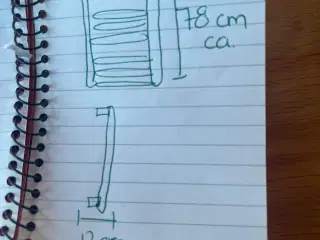 78 cm
ca.